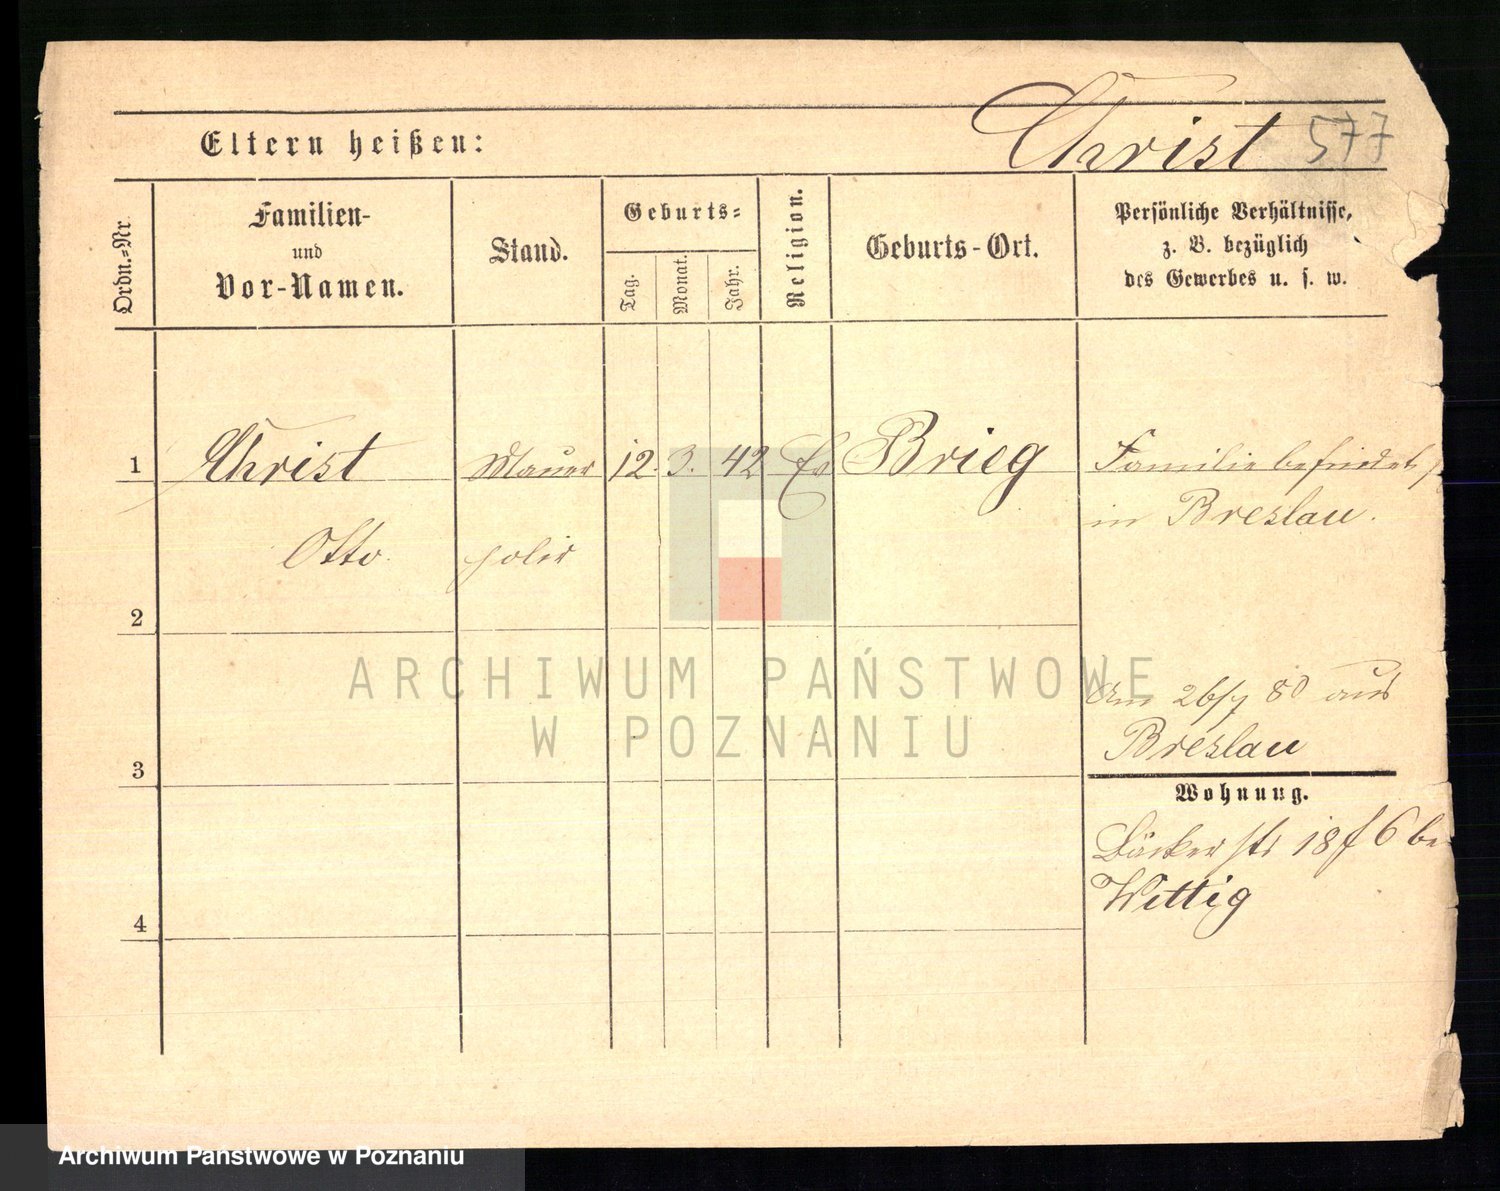 Christ 577
Eltern heißen:
Ordn.-Nr.
Familien-
und
Vor-Namen.
Stand.
Geburts-
Tag.
Monat.
Jahr.
Religion.
Geburts-Ort.
Persönliche Verhältnisse,
z. B. bezüglich
des Gewerbes u. s. w.
1 Christ Maurer 12. 3. 42 Ev Brieg Familie befindet
in Breslau.
Otto polir
2
Am 26/7 80 aus
Breslau
3
Wohnung.
Bäckerstr 18 6 be
Wittig
4
ARCHIWUM PAŃSTWOWE
W POZNANIU
Archiwum Państwowe w Poznaniu